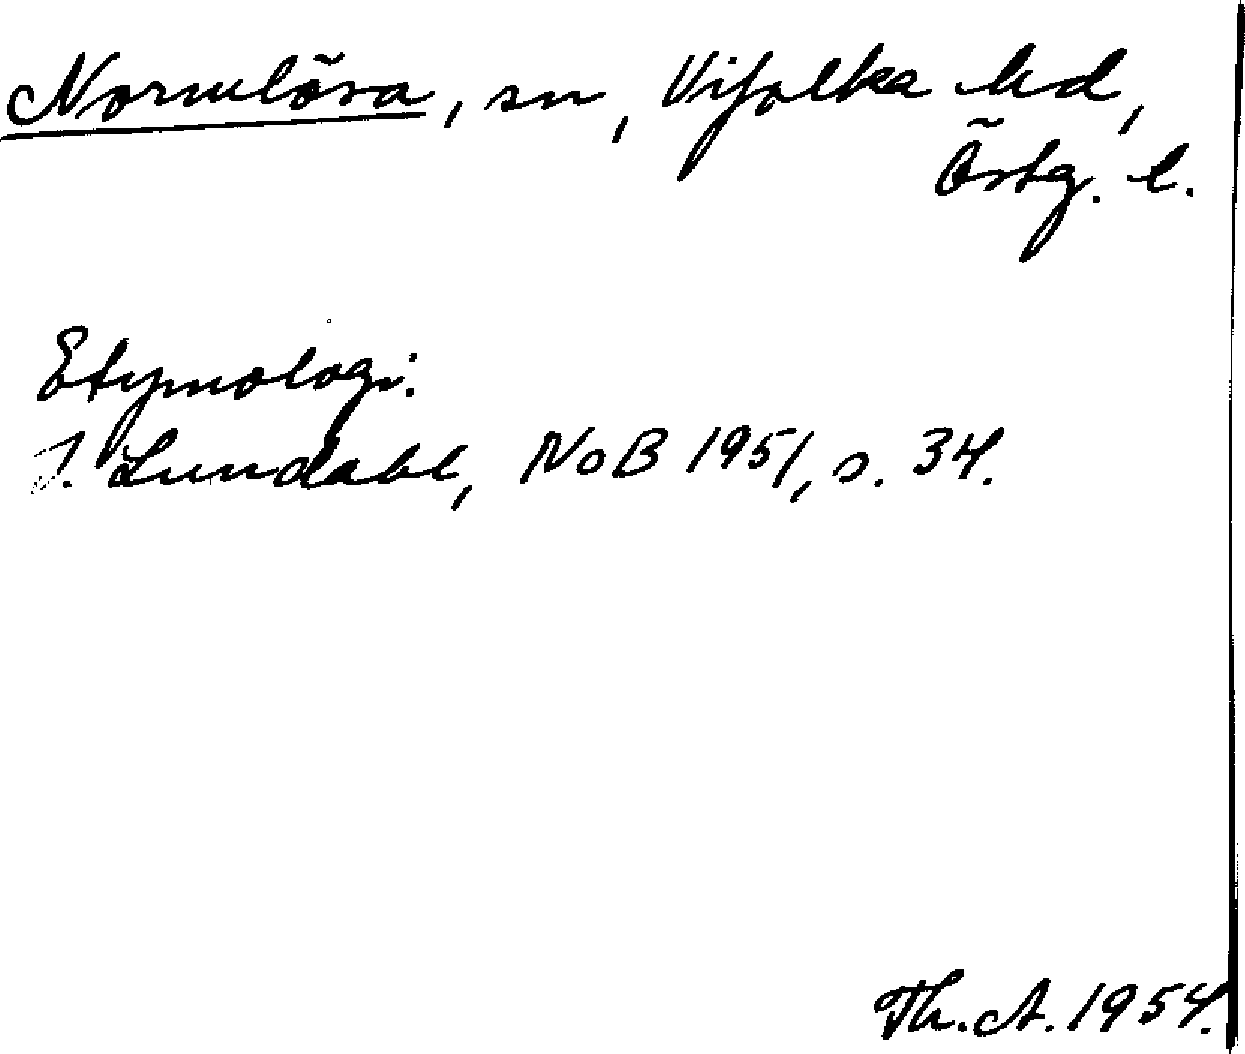 Normlösa, sn, Vifolka hd,
Östg. l.
Etymologi.
I. Lundahl, NoB 1951, s. 34.
Th. A. 1954.